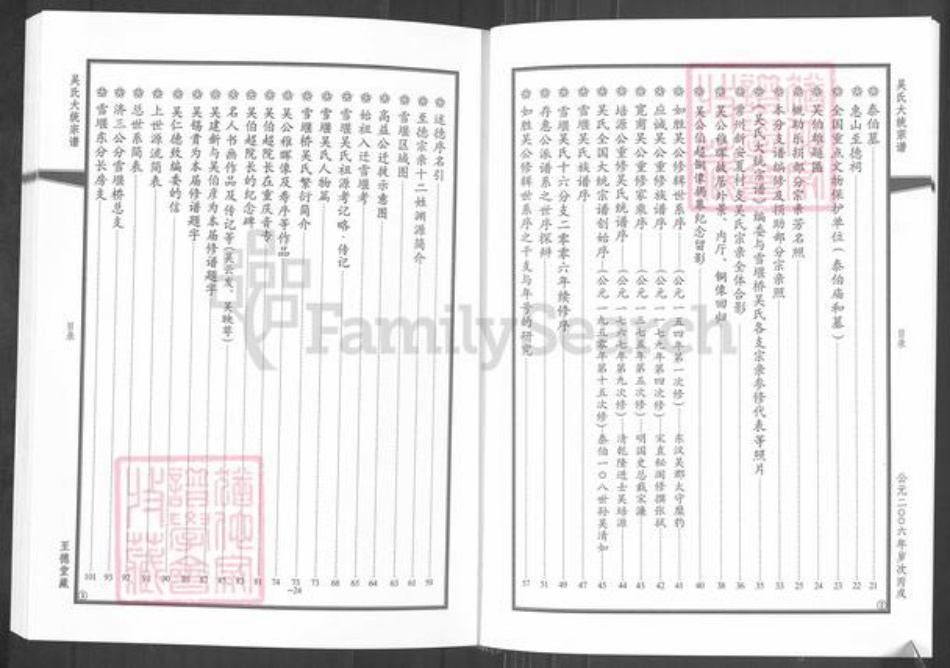 吴氏大统宗谱
目录
公元二〇〇六年岁次丙戌
泰伯墓 21
惠山至德祠 22
全国重点文物保护单位(泰伯庙和墓) 23
吴伯雄题匾 24
赞助乐捐部分宗亲芳名照 25
本分支谱编修及捐助部分宗亲照 33
《吴氏大统宗谱》编委与雪堰桥吴氏各支宗亲参修代表等照片 35
常州新安夏村支吴氏宗亲全体合影 36
吴公稚晖故居外景、内厅、铜像回归 38
吴公伯超铜像揭幕纪念留影 40
如胜吴公修辑世系序 (公元一五四年第一次修) 东汉吴郡太守糜豹 41
应诚吴公重修族谱序 (公元一一七九年第四次修) 宋直秘阁修撰张拭 42
宽甫吴公重修家乘序 (公元一三七五年第五次修) 明国史总裁宋濂 43
培源公重修吴氏统谱序 (公元一七六七年第九次修) 清乾隆进士吴培源 44
吴氏全国大统宗谱创始序 (公元一九五零年第十五次修) 泰伯一〇八世孙吴清如 45
雪堰吴氏族谱序 47
雪堰吴氏十六分支二零零六年续修序 49
存惠公派谱系之世序探辩 51
如胜吴公修辑世系序之干支与年号的研究 57
②
述德序名引 59
至德宗亲十二姓渊源简介 61
雪堰区域图 63
高益公迁徙示意图 64
始祖入迁雪堰考 65
雪堰吴氏祖源考记略·传记 68
雪堰吴氏人物篇 73
雪堰桥吴氏繁衍简介 73-24
吴公稚晖像及寿序等作品 74
吴伯超院长在重庆青专 81
吴伯超院长的纪念碑
名人书画作品及传记等(吴云发、吴映基)
吴建新与吴伯彦为本届修谱题字
吴锡贵为本届修谱题字
吴仁德致编委的信 90
上世源流简表 91
总世系简表 92
济三公分雪堰桥总支 93
雪堰东分长房支 101
吴氏大统宗谱
目录
至德堂藏
FamilySearch